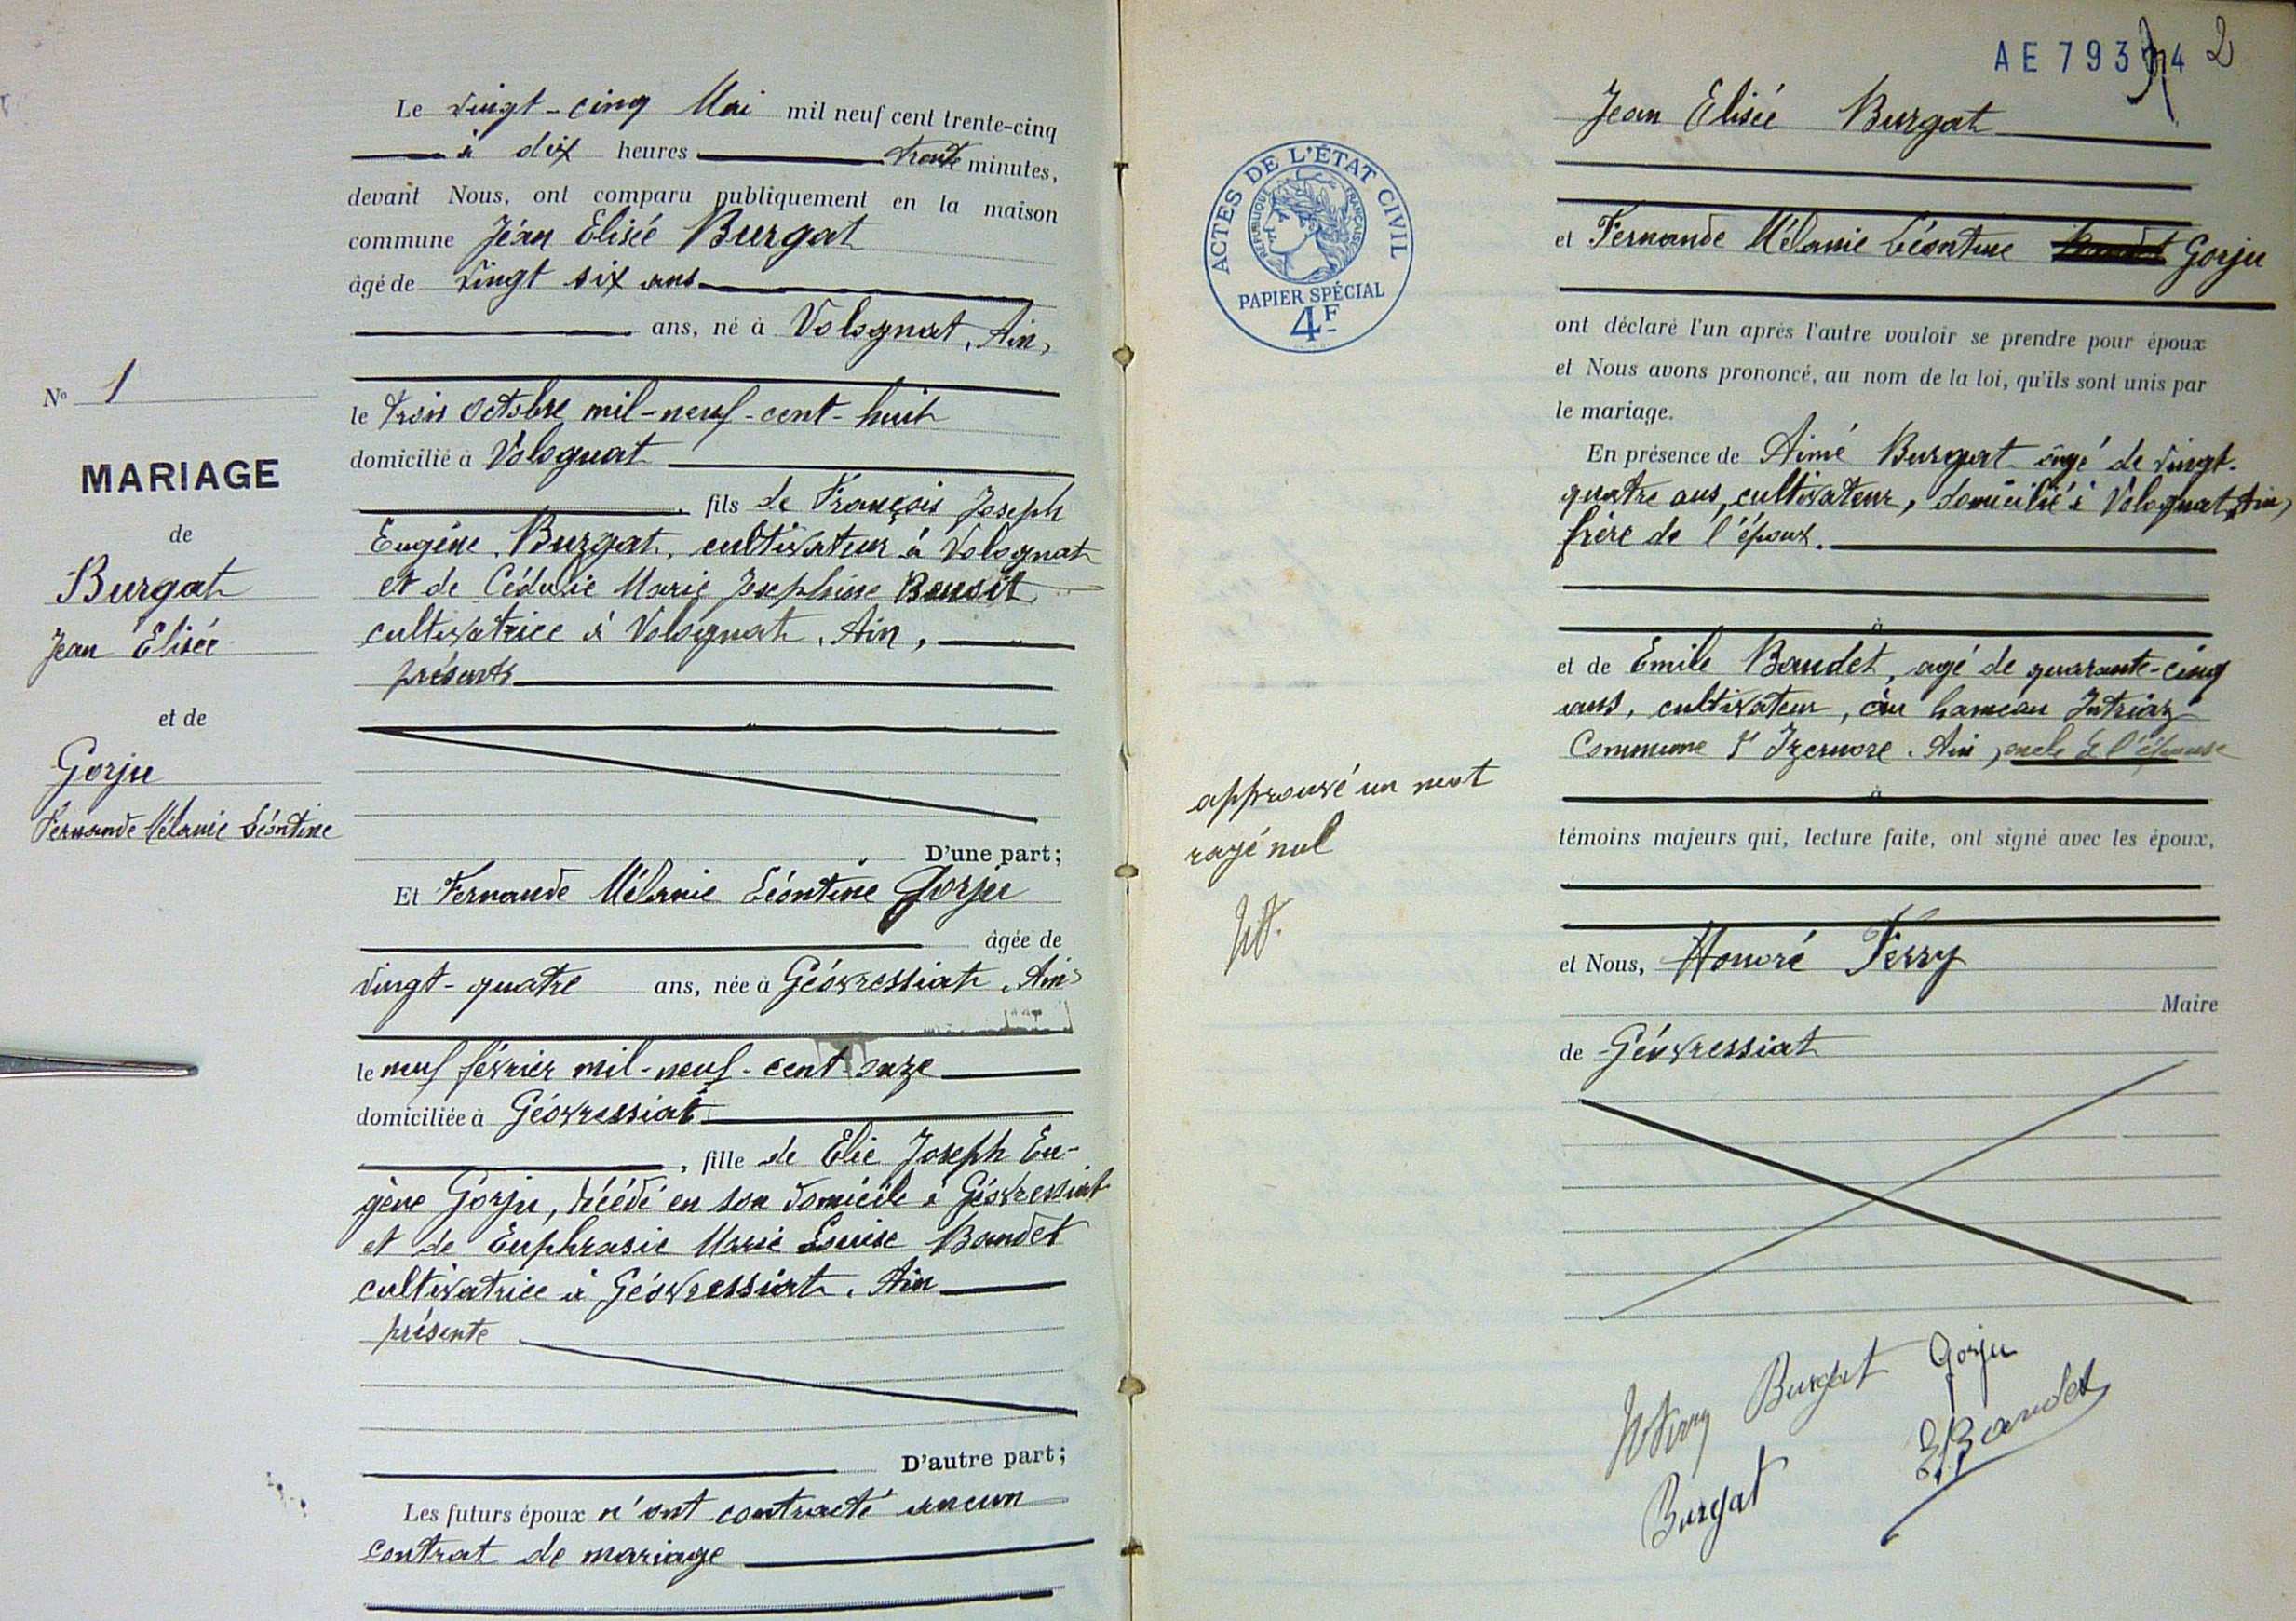 Le vingt-cinq Mai mil neuf cent trente-cinq
à dix heures trente minutes,
devant Nous, ont comparu publiquement en la maison
commune Jean Elisée Burgat
âgé de vingt six ans
ans, né à Volognat, Ain,
le trois octobre mil-neuf-cent-huit
domicilié à Volognat
, fils de François Joseph
Eugène Burgat, cultivateur à Volognat
et de Cédulie Marie Josephine Benoit
cultivatrice à Volognat, Ain,
présents
D'une part;
Et Fernande Mélanie Léontine Gorju
âgée de
vingt-quatre ans, née à Géovressiat, Ain
le neuf février mil-neuf-cent onze
domiciliée à Géovressiat
, fille de Elie Joseph Eu-
gène Gorju, décédé en son domicile à Géovressiat
et de Euphrasie Marie Louise Baudet
cultivatrice à Géovressiat, Ain
présente
D'autre part;
Les futurs époux n'ont contracté aucun
contrat de mariage
No 1
MARIAGE
de
Burgat
Jean Elisée
et de
Gorju
Fernande Mélanie Léontine
AE 793 4 2
ACTES DE L'ÉTAT CIVIL
RÉPUBLIQUE FRANÇAISE
PAPIER SPÉCIAL
4F
Jean Elisée Burgat
et Fernande Mélanie Léontine Gorju
ont déclaré l'un après l'autre vouloir se prendre pour époux
et Nous avons prononcé, au nom de la loi, qu'ils sont unis par
le mariage.
En présence de Aimé Burgat âgé de vingt-
quatre ans, cultivateur, domicilié à Volognat, Ain,
frère de l'époux.
à
et de Emile Baudet, agé de quarante-cinq
ans, cultivateur, au hameau Intriaz
Commune d'Izernore. Ain, oncle de l'épouse
à
témoins majeurs qui, lecture faite, ont signé avec les époux,
et Nous, Honoré Ferry
Maire
de Géovressiat
approuvé un mot
rayé nul
HF.
HFerry Burgat Gorju
Burgat EBaudet